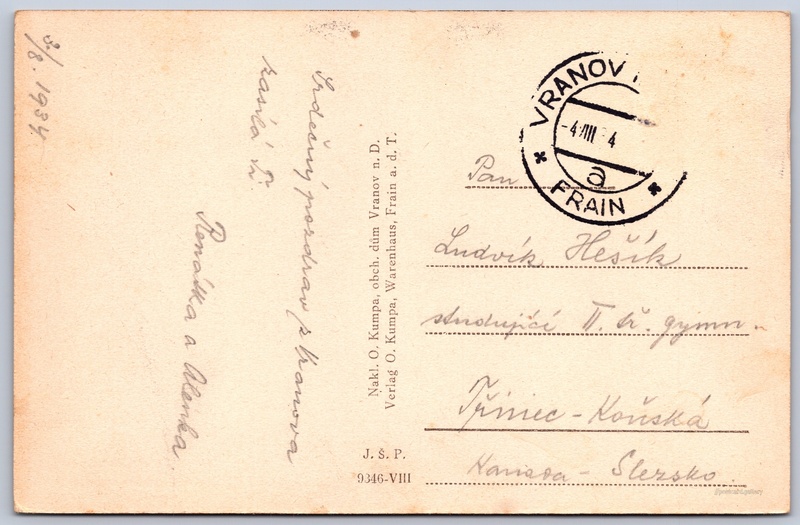 3./8. 1934
Srdečný pozdrav z Vranova
zasílá Ti
Renátka a Alenka
Nakl. O. Kumpa, obch. dům Vranov n. D.
Verlag O. Kumpa, Warenhaus, Frain a. d. T.
J. Š. P.
9346-VIII
VRANOV
-4 VIII 34
a
FRAIN
Pan
Ludvík Hešík
studující II. tř. gymn.
Třinec-Konská
Slezsko.